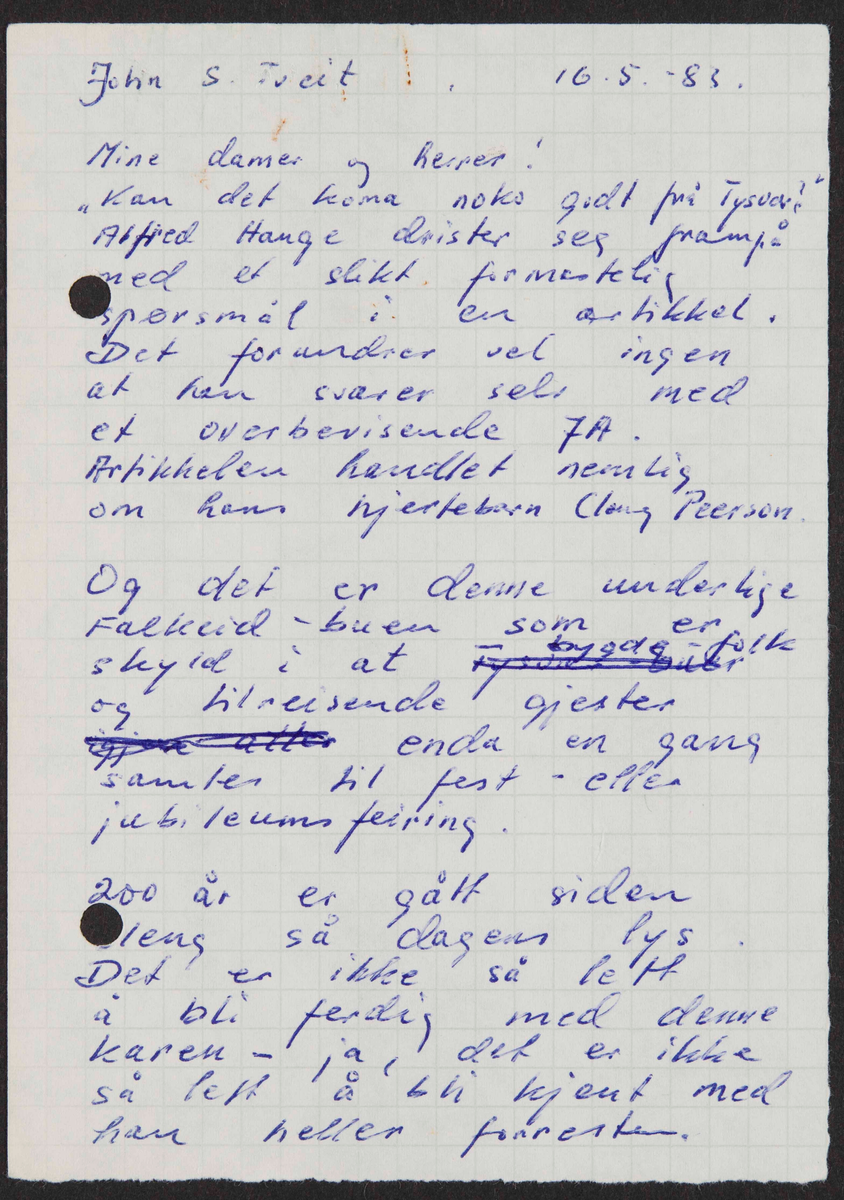 John S. Tveit . 16.5.-83.
Mine damer og herrer!
"Kan det koma noko godt frå Tysvær?"
Alfred Hauge drister seg frampå
med et slikt formastelig
spørsmål i en artikkel.
Det forundrer vel ingen
at han svarer selv med
et overbevisende JA.
Artikkelen handlet nemlig
om hans hjertebarn Cleng Peerson.
Og det er denne underlige
Falkeid-buen som er
skyld i at bygdefolk
og tilreisende gjester
enda en gang
samles til fest - eller
jubileumsfeiring.
200 år er gått siden
Cleng så dagens lys.
Det er ikke så lett
å bli ferdig med denne
karen - ja, det er ikke
så lett å bli kjent med
han heller forresten.